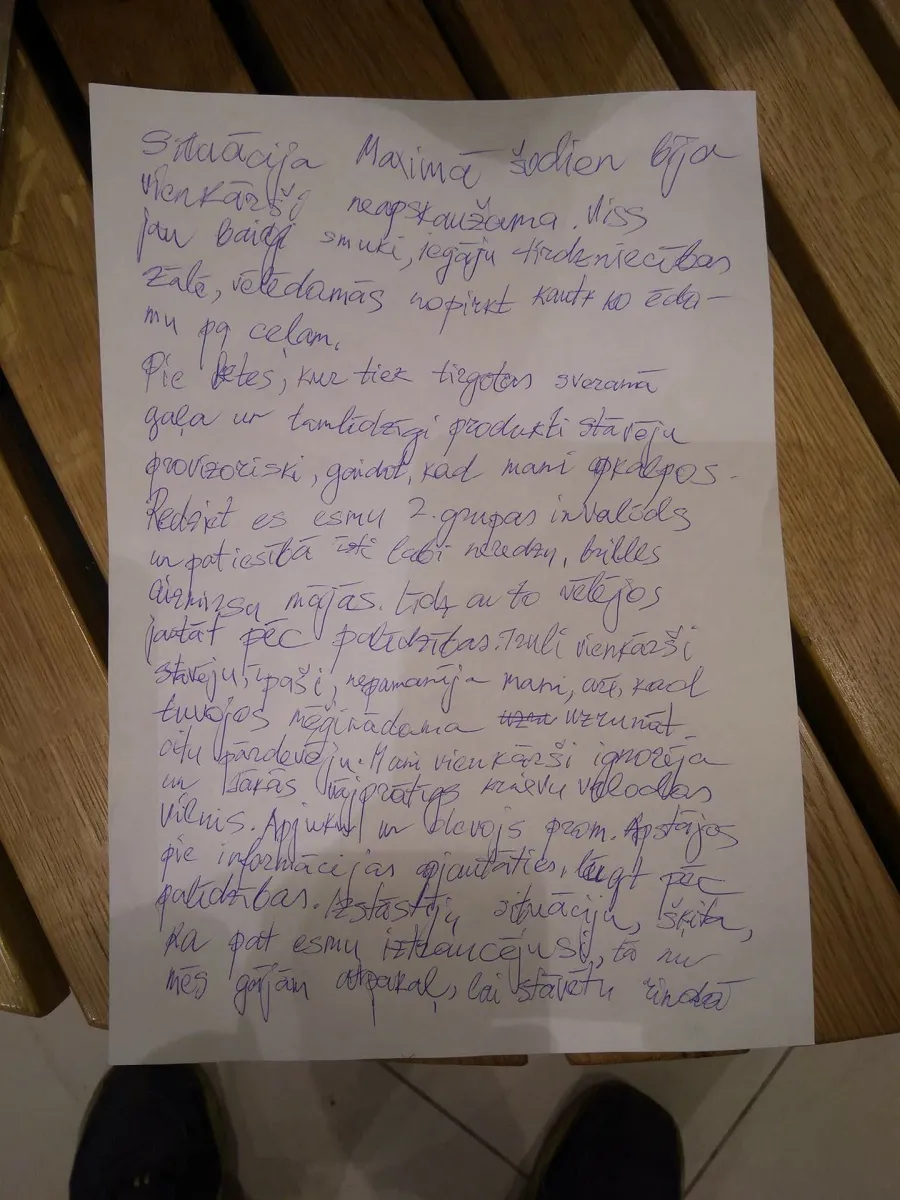 Situācija Maximā šodien bija
vienkārši neapskaužama. Viss
jau baigi smuki, iegāju tirdzniecības
zālē, vēlēdamās nopirkt kautko ēda-
mu pa ceļam.
Pie letes, kur tiek tirgotas sveramā
gaļa un tamlīdzīgi produkti stāvēju
provizoriski, gaidot, kad mani apkalpos.
Redziet es esmu 2. grupas invalīds
un patiesībā īsti labi neredzu, brilles
aizmirsu mājās. Līdz ar to vēlējos
jautāt pēc palīdzības. vienkārši
stāvēju, īpaši, nepamanīja mani, arī, kad
tuvojos mēģinādama uzrunāt
citu pārdevēju. Mani vienkārši ignorēja
un sākās vājprātīgs krievu valodas
vilnis. Apjuku un devojs prom. Apstājos
pie informācijas apjautāties, lūgt pēc
palīdzības. Izstāstīju situāciju, šķita,
ka pat esmu iztraucējusi, tā nu
mēs gājām atpakaļ, lai stāvētu rindā